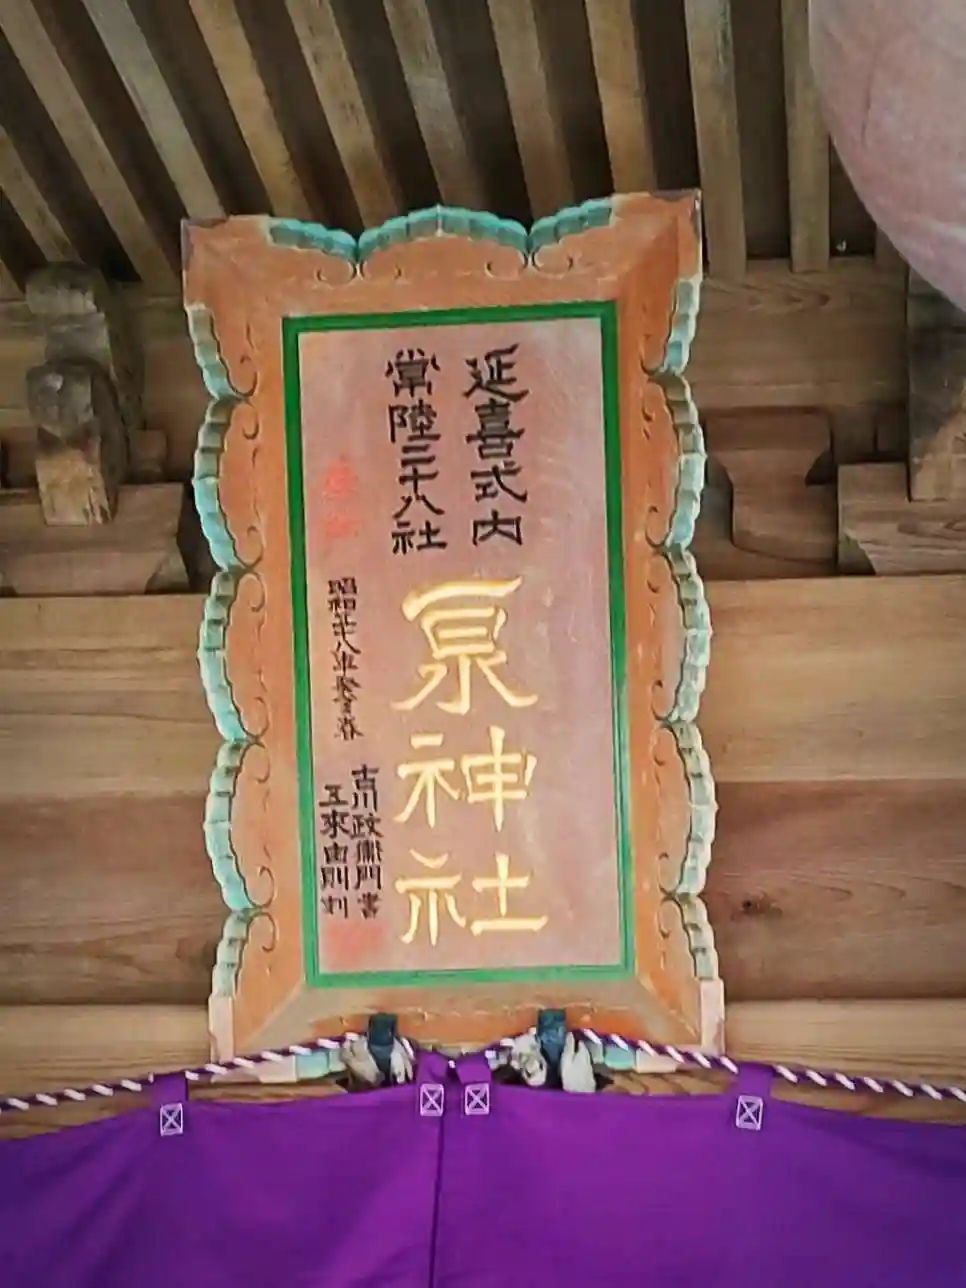 延喜式内
常陸二十八社
泉神社
昭和廿八年 春
古川政衛門書
五來由則刻